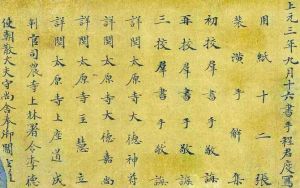 上元三年九月十六書手程君度寫
用紙十二張
裝潢手解集
初挍羣書手敬誨
再挍羣書手敬誨
三挍羣書手敬誨
詳閱太原寺大德神符
詳閱太原寺大德嘉尚
詳閱太原寺主慧立
詳閱太原寺上座道成
判官司農寺上林署令李德
使朝散大夫守尚舍奉御閻玄道